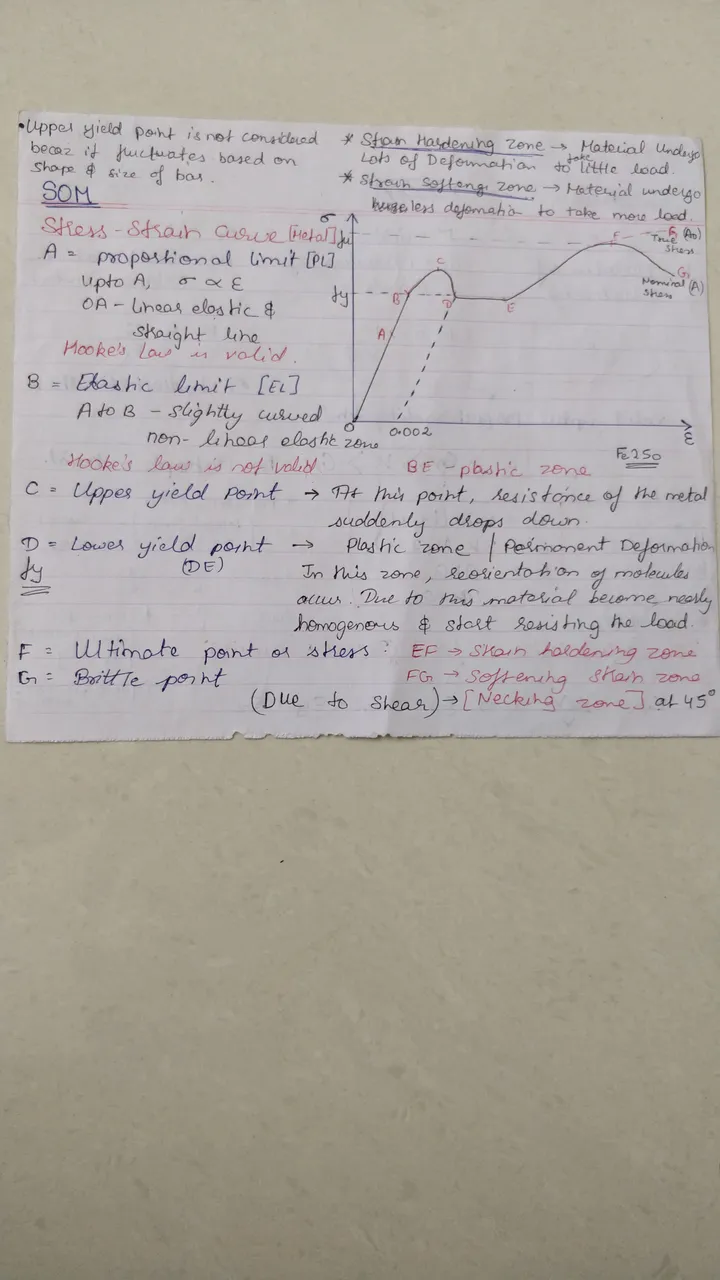 • Upper yield point is not considered
becoz it fluctuates based on
shape & size of bar.
* Strain Hardening Zone → Material Undergo
Lots of Deformation to take little load.
* Strain Softeng. zone → Material undergo
less deformatio to take more load.
SOM
Stress-Strain Curve [Metal]
A = proportional limit [PL]
upto A, σ ∝ ε
OA - Linear elastic &
straight line
Hooke's Law is valid.
B = Elastic limit [EL]
A to B - slightly curved
non-linear elastic zone
Hooke's law is not valid
σ
fu
fy
A
B
C
D
E
F
G (A0)
True
stress
G
Nominal (A)
stress
O
0.002
ε
Fe250
BE - plastic zone
C = Upper yield point → At this point, resistance of the metal
suddenly drops down.
D = Lower yield point → Plastic zone / Permonent Deformation
fy
(DE)
In this zone, reorientation of molecules
occur. Due to this material become nearly
homogenous & start resisting the load.
F = Ultimate point or stress : EF → Strain hardening zone
G = Brittle point
FG → Softening strain zone
(Due to shear) → [Necking zone] at 45°